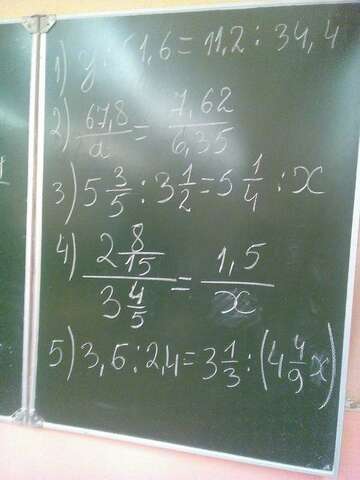 1) y : 51,6 = 11,2 : 34,4
2) 67,8/a = 7,62/6,35
3) 5 3/5 : 3 1/2 = 5 1/4 : x
4) 2 8/15 / 3 4/5 = 1,5/x
5) 3,6 : 2,4 = 3 1/3 : (4 4/9 x)